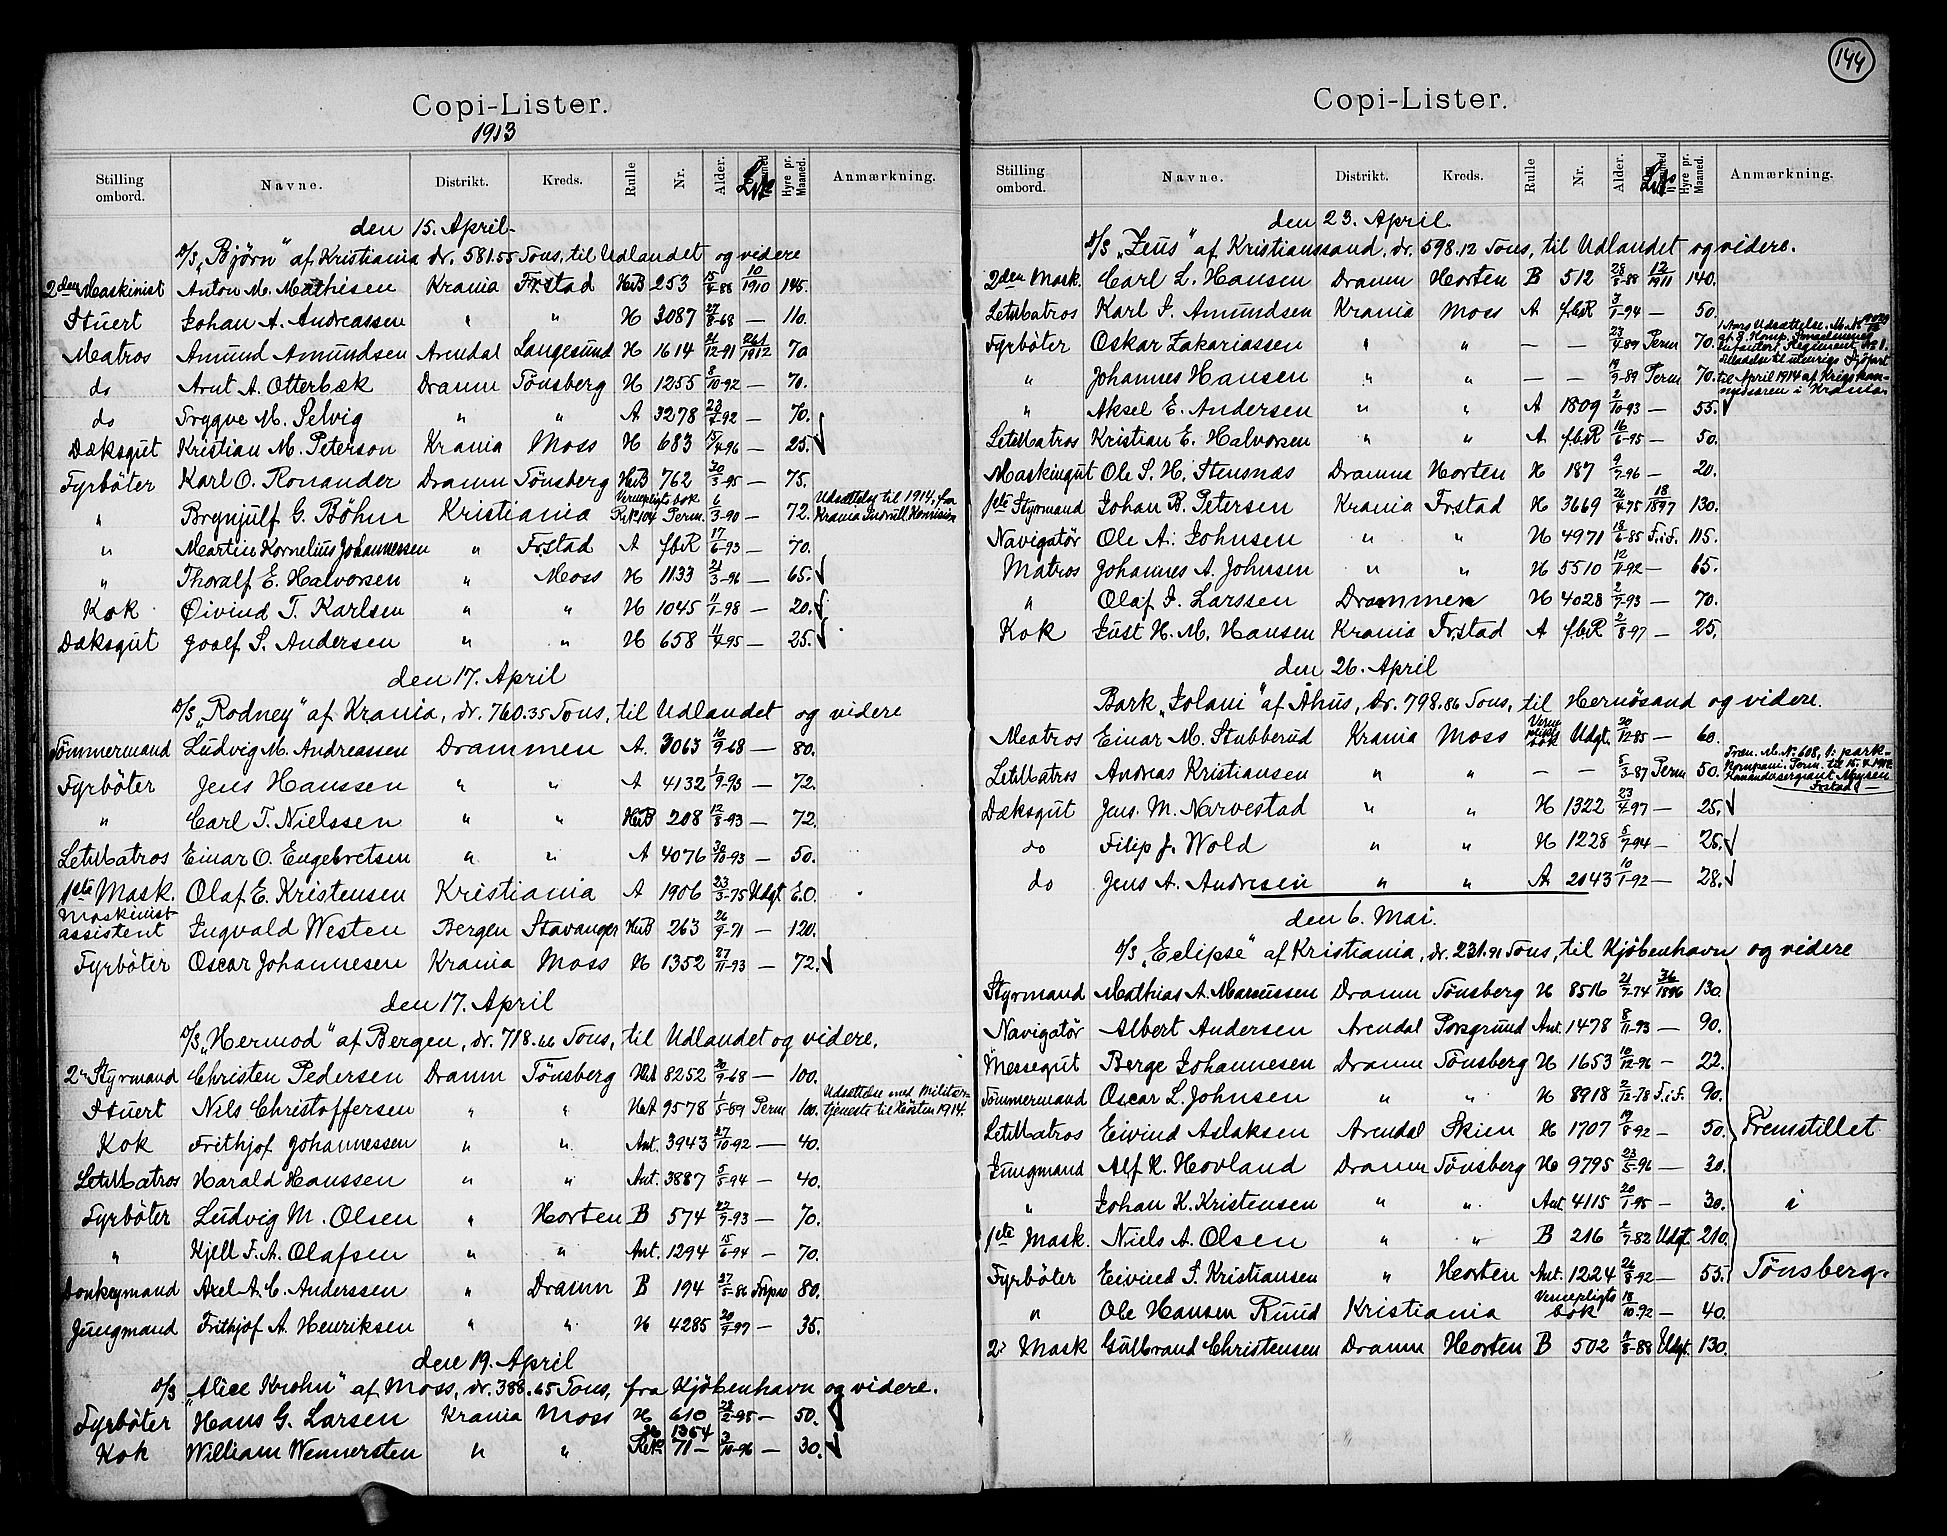 Copi-Lister.
1913
Stilling ombord. Navne. Distrikt. Kreds. Rulle Nr. Alder. Hyre pr. Maaned. Anmærkning.
den 15. April
D/S „Björn" af Kristiania dr. 581.55 Tons, til Udlandet og videre
2den Maskinist Anton M. Mathisen Krania Frstad HuB 253 15/8-88 10/1910 145.
Stuert Johan A. Andreassen " " H 3087 27/8-68 — 110.
Matros Amund Amundsen Arendal Langesund H 1614 21/12-91 241/1912 70
do Arnt A. Otterbæk Dramn Tönsberg H 1255 8/10-92 — 70.
do Trygve M. Selvig " " A 3278 23/7-92 — 70.
Dæksgut Kristian M. Peterson Krania Moss H 683 15/4-96 — 25.
Fyrböter Karl O. Ronander Dramn Tönsberg HuB 762 30/3-95 — 75.
" Brynjulf G. Böhn Kristiania Vernepligts bok Rk. 104 Perm. 6/3-90 — 72. Udsættelse til 1914, fra Krania Indrull. Komision
" Martin Kornelius Johannessen " Frstad A fbR 17/6-93 — 70.
" Thoralf E. Halvorsen " Moss H 1133 21/3-96 — 65.
Kok Øivind T. Karlsen " " H 1045 11/1-98 — 20.
Dæksgut Josef S. Andersen " " H 658 11/4-95 — 25.
den 17. April
D/S „Rodney" af Krania, dr. 760.35 Tons, til Udlandet og videre
Tömmermand Ludvig M. Andreassen Drammen A. 3063 10/9-68 — 80.
Fyrböter Jens Hanssen " " A 4132 1/9-93 — 72.
" Carl T. Nielssen " " HuB 208 12/8-93 — 72.
LetMatros Einar O. Engebretsen " " A 4076 30/10-93 — 50.
1ste Mask. Olaf E. Kristensen Kristiania A 1906 23/3-75 Udgt E.O.
Maskinist assistent Ingvald Westen Bergen Stavanger HuB 263 26/9-71 — 120.
Fyrböter Oscar Johannesen Krania Moss H 1352 27/11-93 — 72.
den 17. April
D/S „Hermod" af Bergen, dr. 718.66 Tons, til Udlandet og videre.
2n Styrmand Christen Pedersen Dramn Tönsberg HuA 8252 20/9-68 — 100.
Stuert Nils Christoffersen " " HuA 9578 1/5-89 Perm 100. Udsættelse med Militær-tjeneste til Hösten 1914.
Kok Frithjof Johannessen " " Ant. 3943 27/10-92 — 40.
LetMatros Harald Hanssen " " Ant. 3887 5/5-94 — 40.
Fyrböter Ludvig M. Olsen " Horten B 574 22/9-93 — 70.
" Kjell F. A. Olafsen " " Ant. 1294 15/6-94 — 70.
Donkeymand Axel A. C. Anderssen " Dramn B 194 27/5-86 80.
Jungmand Frithjof A. Henriksen " " H 4285 20/9-97 — 35.
den 19. April
D/S „Alice Krohn" af Moss, dr. 388.65 Tons, fra Kjöbenhavn og videre.
Fyrböter Hans G. Larsen Krania Moss H 610 28/2-95 — 50.
Kok William Wennersten " " 36 1354 Rk. 71 — 3/10-96 — 30.
144
Copi-Lister.
Stilling ombord. Navne. Distrikt. Kreds. Rulle Nr. Alder. Hyre pr. Maaned. Anmærkning.
den 23. April
D/S „Zeus" af Kristianssand, dr. 598.12 Tons, til Udlandet og videre.
2den Mask. Carl L. Hansen Dramn Horten B 512 28/8-88 12/1911 140.
LetMatros Karl J. Amundsen Krania Moss A fbR 3/1-94 — 50.
Fyrböter Oskar Zakariassen " " — — 23/4-89 Perm 70. 1 Aars Udsættelse M. No
" Johannes Hansen " " — — 19/9-89 Perm 70. til April 1914 af Krigskom-missæren i Krania
" Aksel E. Andersen " " A 1809 2/10-93 — 55.
LetMatros Kristian E. Halvorsen " " A fbR 16/6-95 — 50.
Maskingut Ole S. H. Stensnæs Dramn Horten H 187 9/7-96 — 20.
1ste Styrmand Johan B. Petersen Krania Frstad H 3669 26/4-75 18/1897 130.
Navigatør Ole A. Johnsen " " H 4971 18/6-85 F.i.F. 115.
Matros Johannes A. Johnsen " " H 5510 12/11-92 — 65.
" Olaf J. Larssen Drammen H 4028 2/9-93 — 70.
Kok Just H. M. Hansen Krania Frstad A fbR 2/8-97 — 25.
den 26. April
Bark „Jolani" af Åhus, dr. 798.86 Tons, til Hernøsand og videre.
Matros Einar M. Stubberud Krania Moss Verne pligts bok Udgt. 20/12-85 — 60.
LetMatros Andreas Kristiansen " " — — 5/3-87 Perm 50. Træn. M. No 608, 1. park-Kompani. Perm. til 15.4.1914 Kommandosergeant Mysen Frstad —
Dæksgut Jens. M. Narvestad " " H 1322 23/4-97 — 25.
do Filip J. Wold " " H 1228 5/7-94 — 25.
do Jens A. Andresen " " A 2043 10/1-92 — 28.
den 6. Mai.
D/S „Eclipse" af Kristiania, dr. 231.91 Tons, til Kjöbenhavn og videre
Styrmand Mathias A. Marcussen Dramn Tönsberg H 8516 21/7-74 36/1896 130.
Navigatør Albert Andersen Arendal Porsgrund Ant. 1478 8/11-93 — 90.
Messegut Berge Johannesen Dramn Tönsberg H 1653 10/12-96 — 22.
Tömmermand Oscar L. Johnsen " " H 8918 2/12-78 F.i.F. 90.
LetMatros Eivind Aslaksen Arendal Skien H 1707 19/8-92 — 50. Fremstillet
Jungmand Alf R. Hovland Dramn Tönsberg H 9795 23/5-96 — 30.
" Johan K. Kristensen " " Ant 4115 20/1-95 — 30. i
1ste Mask. Niels A. Olsen " " B 216 2/7-82 Udgt. 210.
Fyrböter Eivind S. Kristiansen " Horten Ant. 1224 26/8-92 — 55. Tönsberg.
" Ole Hansen Ruud Kristiania Vernepligts bok 18/10-92 — 40.
2n Mask Gulbrand Christensen Dramn Horten B 502 2/8-88 Udgt. 130.